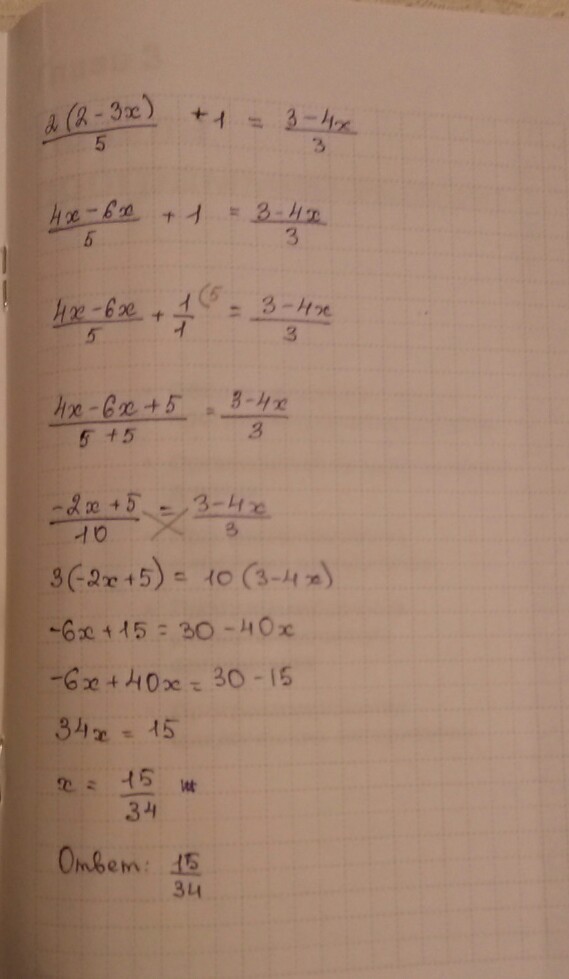 2(2-3x)/5 + 1 = 3-4x/3
4x-6x/5 + 1 = 3-4x/3
4x-6x/5 + 1/1 (5 = 3-4x/3
4x-6x+5/5+5 = 3-4x/3
-2x+5/10 = 3-4x/3
3(-2x+5) = 10(3-4x)
-6x+15 = 30-40x
-6x+40x = 30-15
34x = 15
x = 15/34
Ответ: 15/34